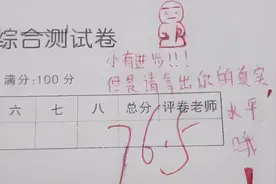 综合测试卷
小有进步!!!
满分:100分
但是请拿出你的真实
水平
哦!
六 七 八 总分 评卷老师
76.5